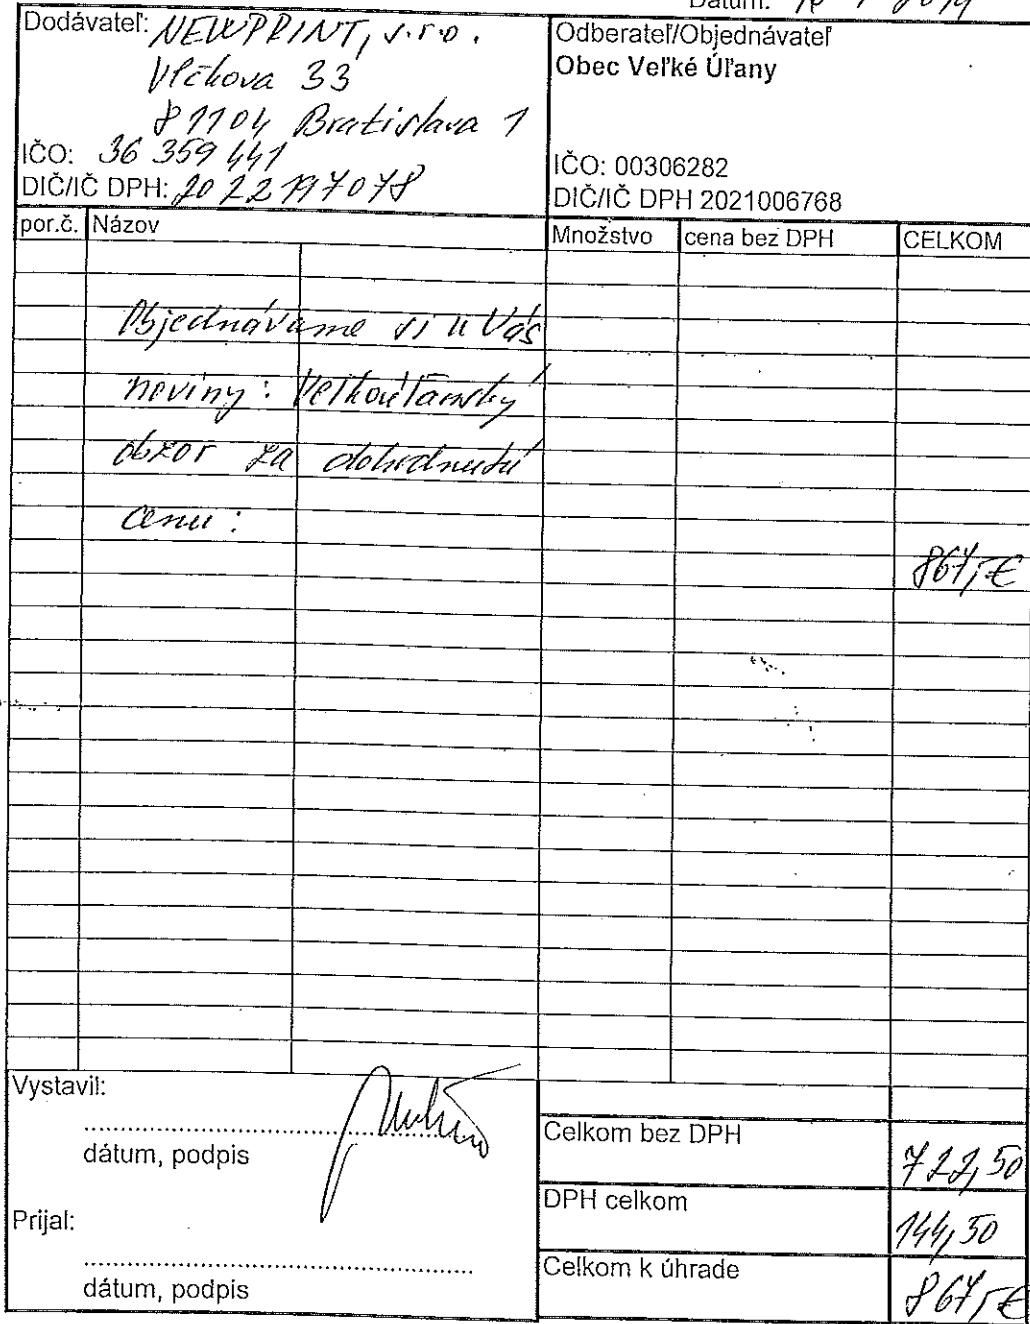 Dátum: 2019
Dodávateľ: NEWPRINT, s.r.o.
Vlčkova 33
81104 Bratislava 1
IČO: 36 359 441
DIČ/IČ DPH: 2022197078
Odberateľ/Objednávateľ
Obec Veľké Úľany
IČO: 00306282
DIČ/IČ DPH 2021006768
por.č. Názov Množstvo cena bez DPH CELKOM
Objednávame si u Vás
noviny: Veľkoúľanský
obzor za dohodnutú
cenu:
867,-€
Vystavil:
dátum, podpis
Prijal:
dátum, podpis
Celkom bez DPH 722,50
DPH celkom 144,50
Celkom k úhrade 867,-€